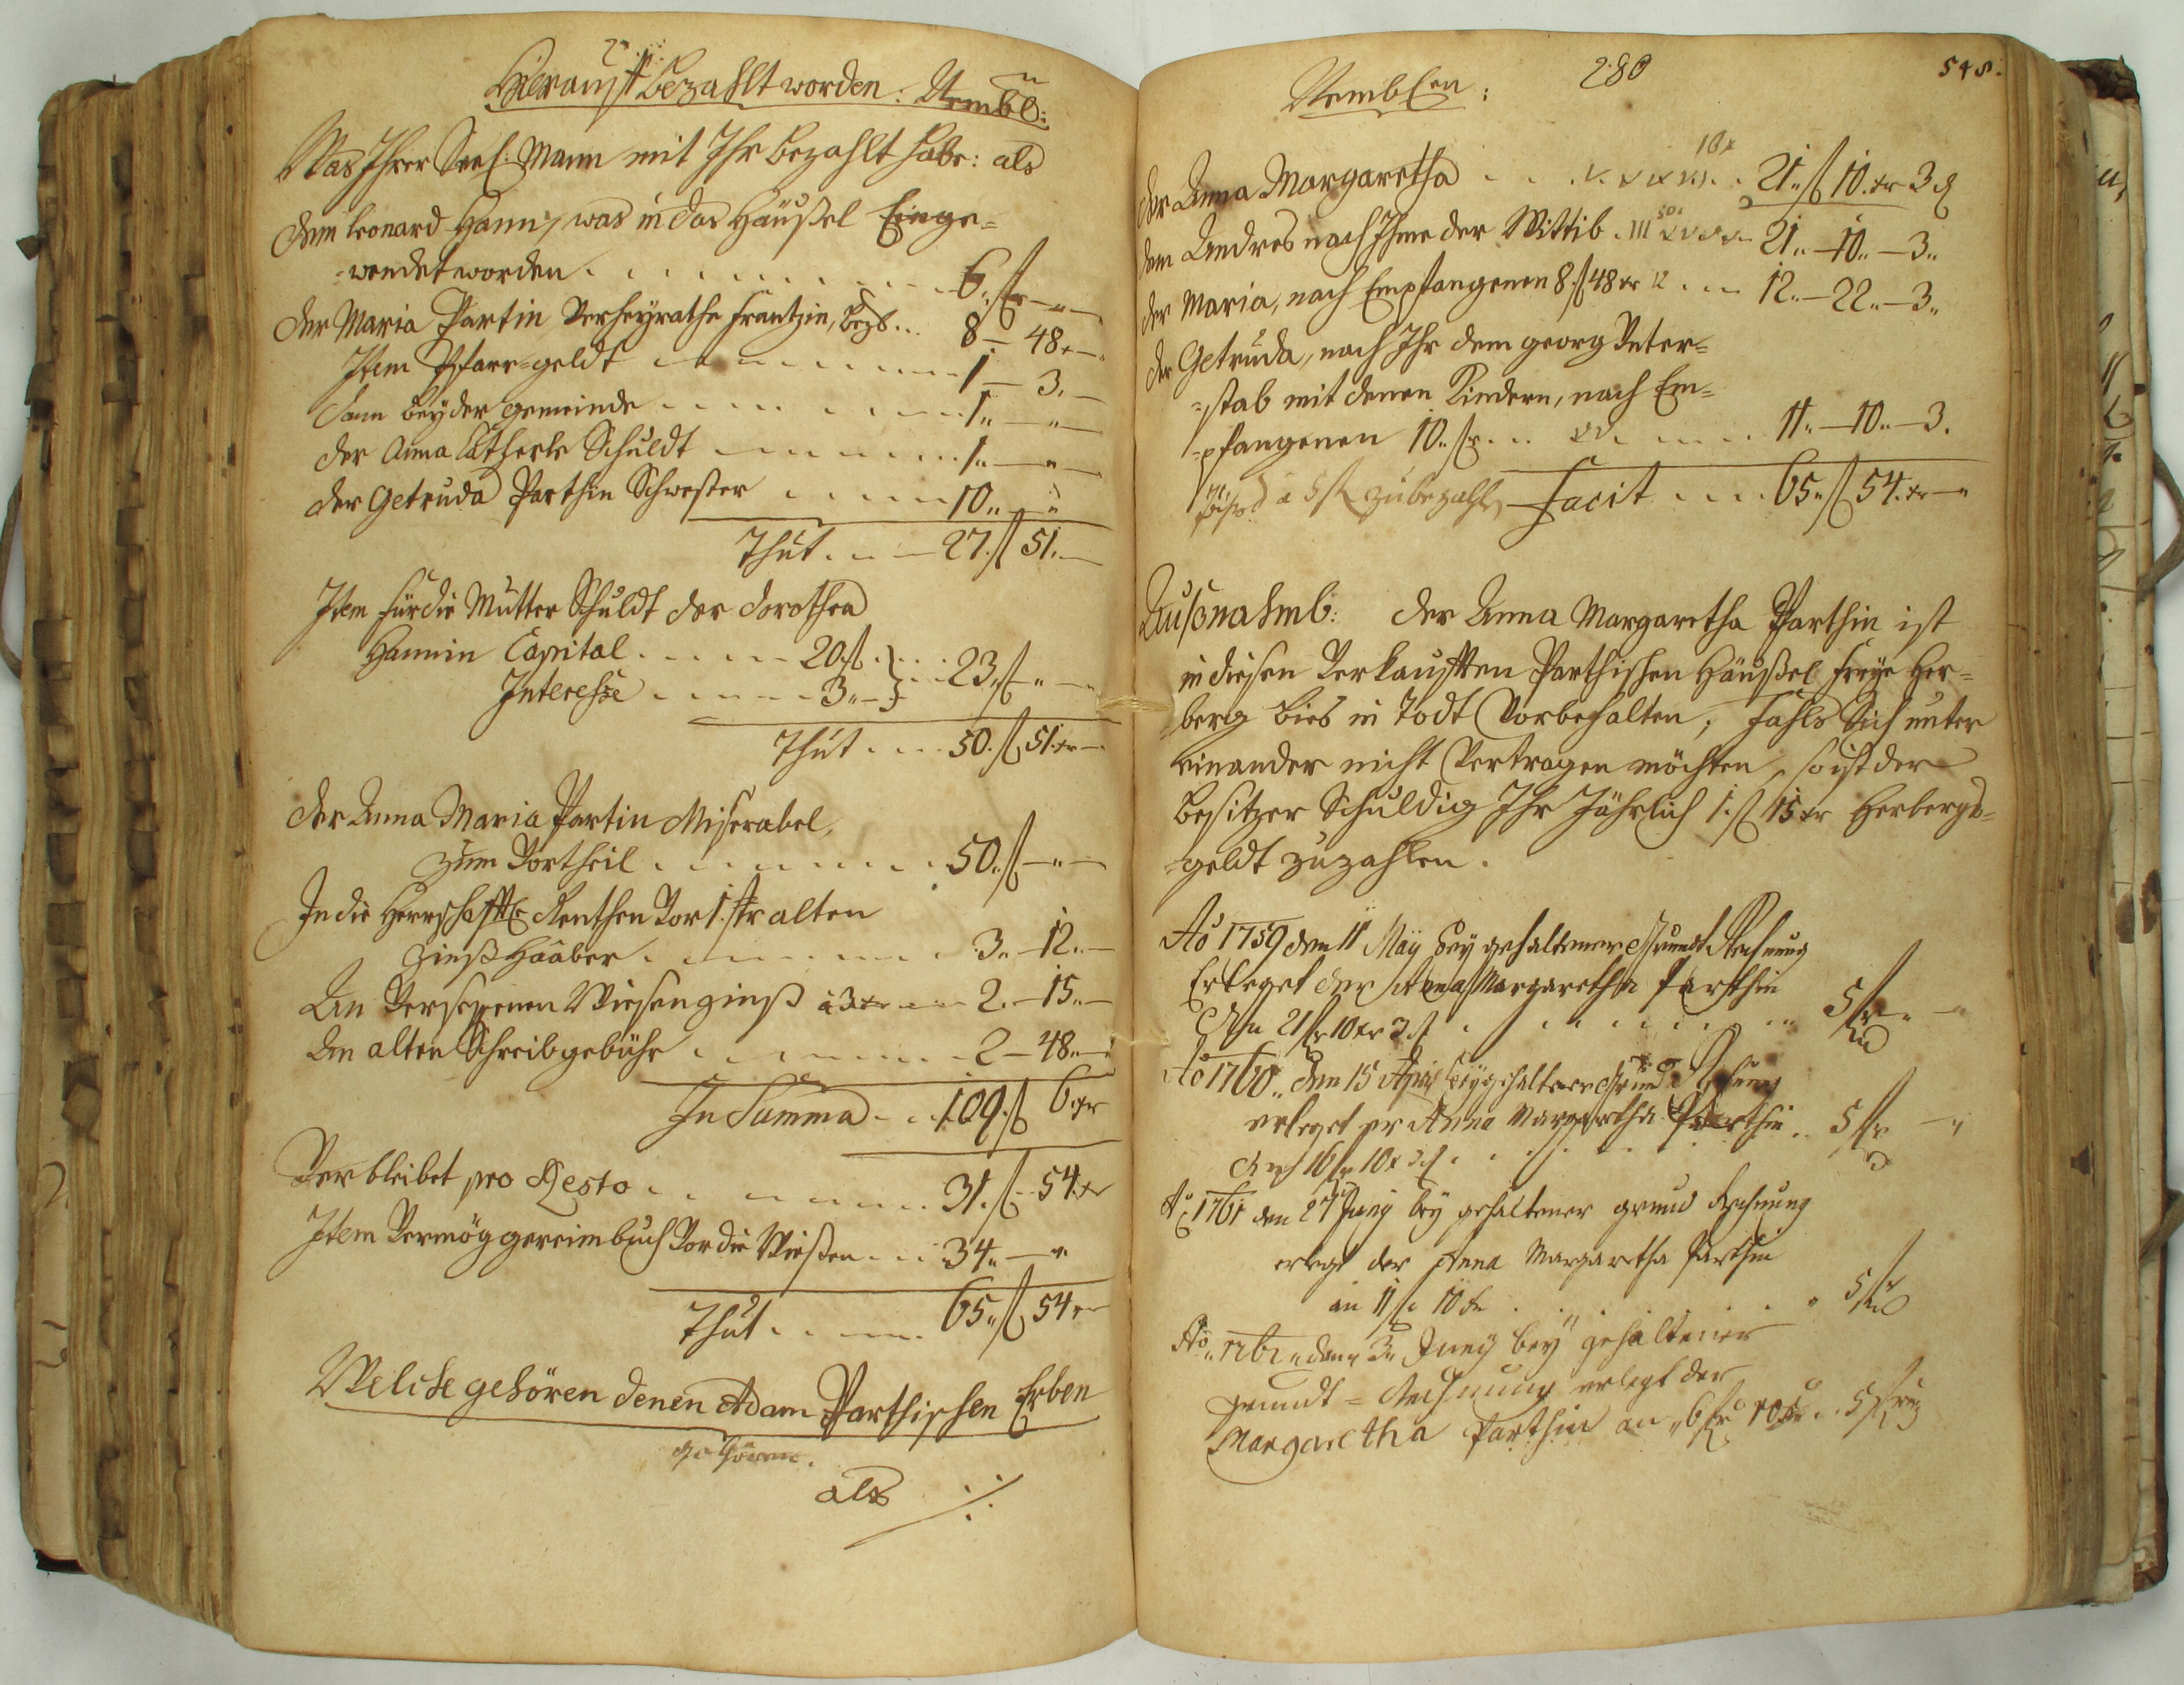 Hierauff bezahlt worden: Nembl:
Was Ihrer Seel: Mann mit Ihr bezahlt habe: als
dem Leonard Hann, was in das Häußel Einge=
=wendet worden . . . . . . . . . 6 f –„–
der Maria Partin Verheyrathe Frantzin, bezb. . . 8 – 48 –
Item Pfarr=geldt . . . . . . . 1 – 3. –
dann bey der gemeinde . . . . . . . 1„ –„–
der Anna Schuldt . . . . . . 1„ –„–
der Getruda Parthin Schwester . . . . . 10„ –„
Thut . . – 27 f 51. –
Item für die Mutter Schuldt der Dorothea
Hannin Capital . . . . . 20 f } . . . 23 f –„–
Interesse . . . . . . 3„ – }
Thut . . . 50. f 51. xr –
der Anna Maria Partin Miserabel,
zum Vortheil . . . . . . . . 50„ f –„–
In die Herrschafftl. Renthen Vor 1. alten
Zinß Haaber . . . . . . . . 3„ – 12„ –
An Versessenen Wiesenzinß à 3 xr . . 2. – 15„ –
An alten Schreibgebühr . . . . . . . 2 – 48„ –
In Summa . . . 109. f 6. xr
Verbleibet pro Resto . . . . . . . 31. f – 54. xr
Item Vermög Vor die Wießen . . . 34„ –„
Thut . . . . 65„ f 54 xr
Welche gehören denen Adam Parthischen Erben
gehören.
als ./.
Nemblen: 280 548.
10 x
der Anna Margaretha . . . . . 21„ f 10. xr 3 d
dem Andres nach Ihme der Wittib . . . 21„ – 10„ – 3„
der Maria, nach Empfangenen 8. f 48 xr . . . 12„ – 22„ – 3„
der Getruda, nach Ihr dem georg Vater=
=stab mit denen Kindern, nach Em=
=pfangenen 10„ f . . . . . . . 11„ – 10„ – 3.
à 5 f zu bezahlen Facit . . . . 65„ f 54. xr –„
Außnahmb: der Anna Margaretha Parthin ist
in diesen Verkaufften Parthischen Häußel freye Her=
=berg bies in Todt Vorbehalten, fahls Sich unter
einander nicht Vertragen möchten, so ist der
Besitzer Schuldig Ihr Jährlich 1. f 15 xr Herbergs=
=geldt zuzahlen.
Aõ 1759 den 11 Maÿ bey gehaltener Grundt Rechnung
Erleget der Anna Margaretha Parthin
An 21 f 10 xr 3 d . . . . . . . . . 5 f „ –
Aõ 1760„ den 15 April bey gehaltener Grund Rechnung
erleget er Anna Margartha Parthin . . 5 f –„
An 16 f 10 x 3 d . . . . . .
Aõ 1761 den 27 Juny bey gehaltener grund Rechnung
erlegt der Anna Margartha Parthin
an 11 f 10 xr . . . . . . 5 f
Aõ„ 1762„ den„ 3„ Juny bey gehaltener
grundt = Rechnung erlegt der
Margaretha Parthin an „6 f 10 xr . . 5 f